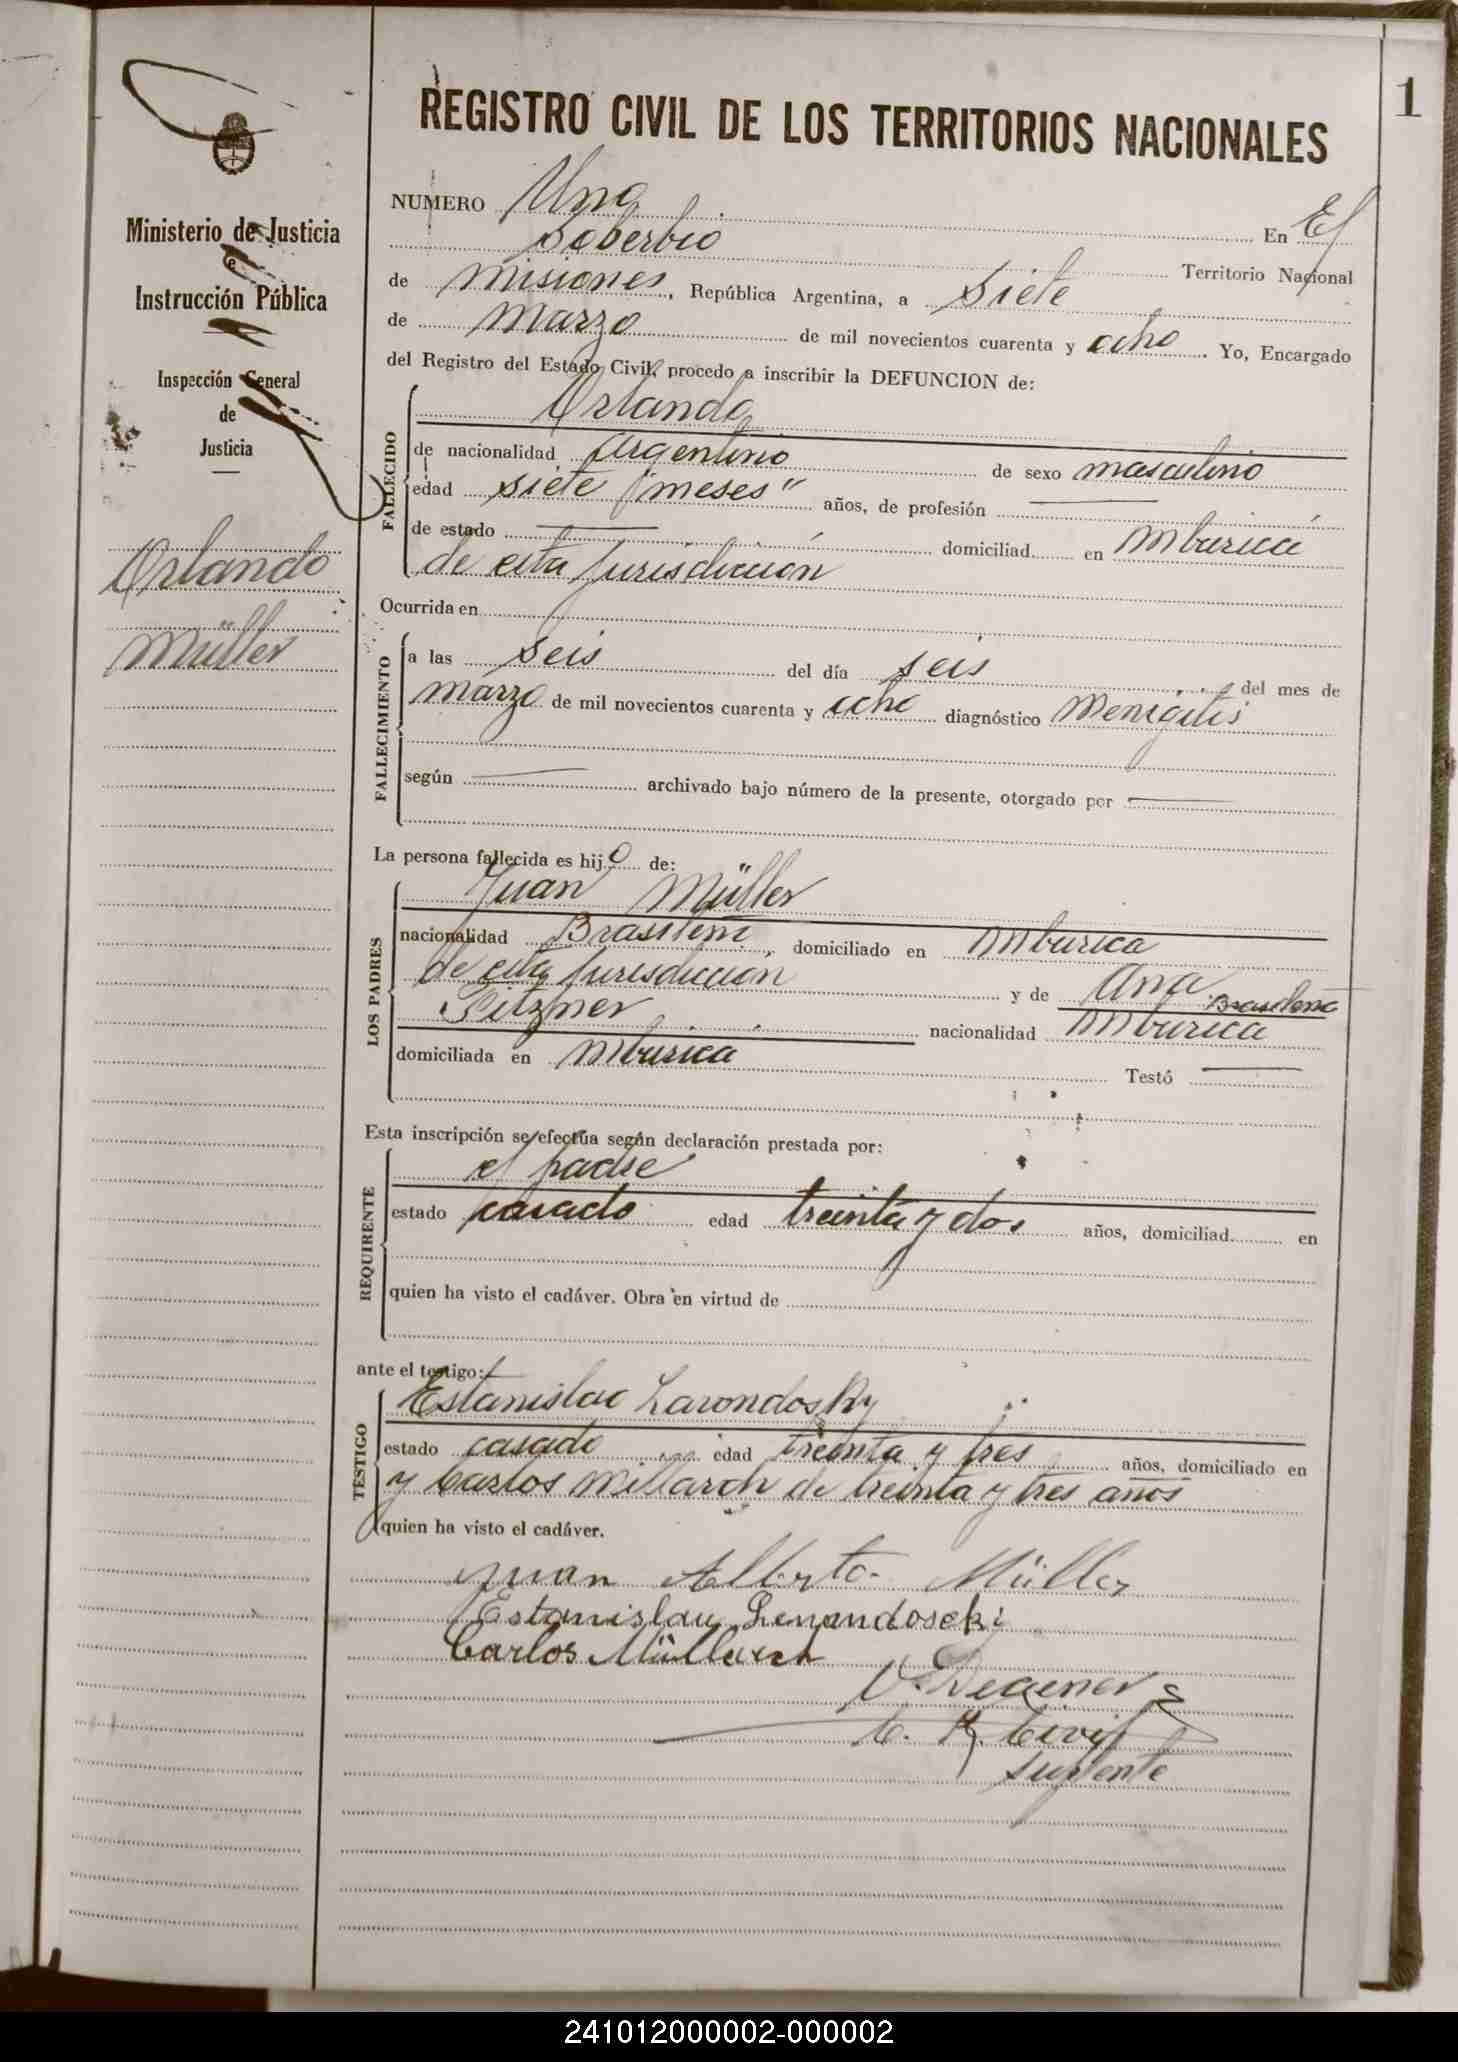 1
REGISTRO CIVIL DE LOS TERRITORIOS NACIONALES
Ministerio de Justicia
e
Instrucción Pública
Inspección General
de
Justicia
Orlando
Müller
NUMERO Uno En El
Soberbio Territorio Nacional
de Misiones, República Argentina, a siete
de Marzo de mil novecientos cuarenta y ocho. Yo, Encargado
del Registro del Estado Civil, procedo a inscribir la DEFUNCION de:
FALLECIDO
Orlando
de nacionalidad argentino de sexo masculino
edad siete "meses" años, de profesión
de estado domiciliad en Mburicá
de esta Jurisdiccion
Ocurrida en
FALLECIMIENTO
a las seis del día seis del mes de
marzo de mil novecientos cuarenta y ocho diagnóstico Menigitis
según archivado bajo número de la presente, otorgado por
La persona fallecida es hijo de:
LOS PADRES
Juan Müller
nacionalidad Brasileña, domiciliado en Mburica
de esta Jurisdiccion y de Ana
Brasileña
Pitzner nacionalidad Mburica
domiciliada en Mburica Testó
Esta inscripción se efectúa según declaración prestada por:
REQUIRENTE
el padre
estado casado edad treinta y dos años, domiciliad en
quien ha visto el cadáver. Obra en virtud de
ante el testigo:
TESTIGO
Estanislao
estado casado edad treinta y tres años, domiciliado en
y Carlos Millarch de treinta y tres años
quien ha visto el cadáver.
Juan Alberto Müller
Estanislau
Carlos Müllerch
V. Degener
E. R. Civil
Suplente
241012000002-000002